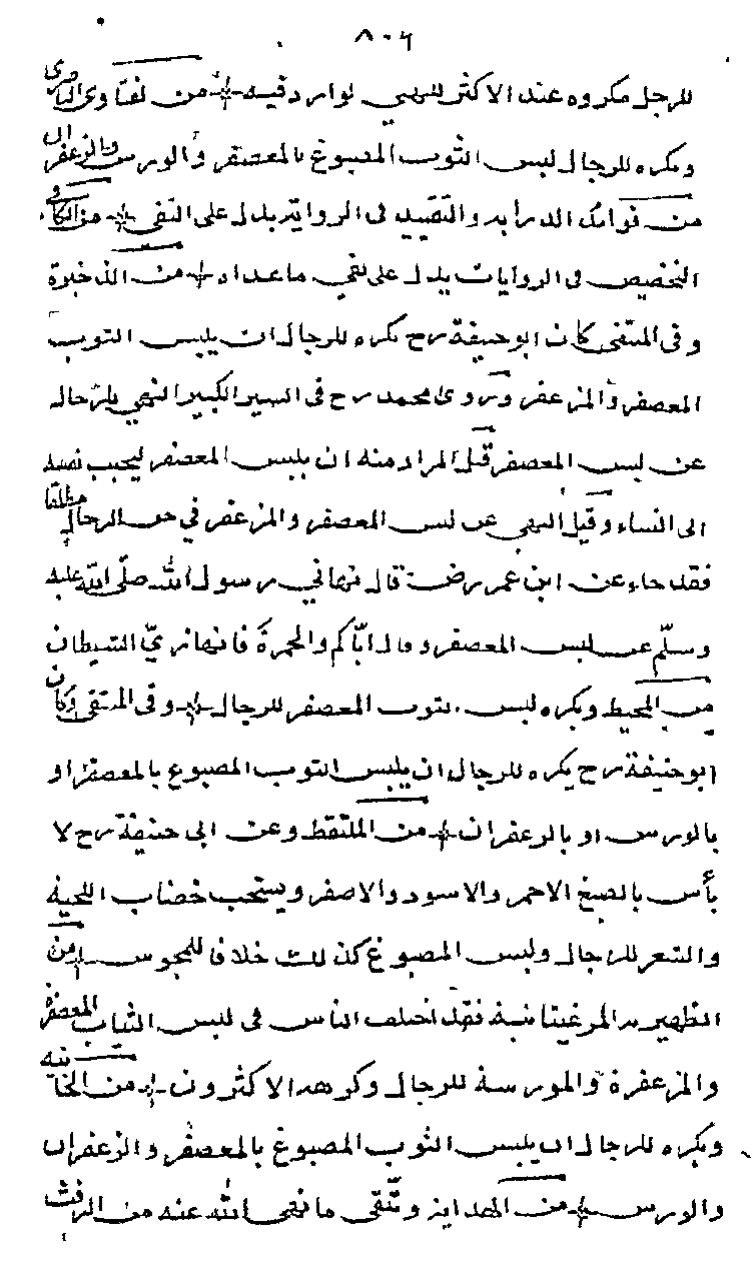 ٨٠٦
للرجل مكروه عند الاكثر للنهي الوارد فيه من الفتاوى الناصرى
ويكره للرجال لبس الثوب المصبوغ بالمعصفر والورس والزعفران
من والتقييد فى الرواية يدل على النفى من الكافى
التخصيص فى الروايات يدل على نفي ماعداه من الذخيرة
وفى المنتقى كان ابو حنيفة رح يكره للرجال ان يلبس الثوب
المعصفر والمزعفر وروى محمد رح فى السير الكبير النهي للرجال
عن لبس المعصفر قيل المراد منه ان يلبس المعصفر ليحبب نفسه
الى النساء وقيل النهي عن لبس المعصفر والمزعفر في حق الرجال مطلقا
فقد جاء عن ابن عمر رضـ قال نهاني رسول الله صلّى الله عليه
وسلّم عن لبس المعصفر وقال ايّاكم والحمرة فانها زيّ الشيطان
من المحيط ويكره لبس ثوب المعصفر للرجال وفى المنتقى وكان
ابو حنيفة رح يكره للرجال ان يلبس الثوب المصبوغ بالمعصفر او
بالورس او بالزعفران من الملتقط وعن ابى حنيفة رح لا
بأس بالصبغ الاحمر والاسود والاصفر ويستحب خضاب اللحية
والشعر للرجال ولبس المصبوغ كذلك خلافا للمجوس من
الظهيرية المرغينانية فقد اختلف الناس فى لبس الثياب المعصفرة
والمزعفرة والمورسة للرجال وكرهه الاكثرون من الخانية
ويكره للرجال ان يلبس الثوب المصبوغ بالمعصفر والزعفران
والورس من الهداية وتّقى ما نهى الله عنه من الرفث